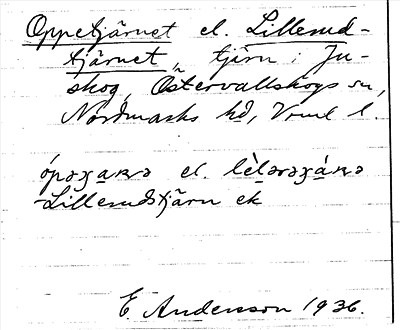 Oppetjärnet el. Lillerud-
tjärnet, tjärn i Ju-
skog, Östervallskogs sn,
Nordmarks hd, Vrml l.
el.
Lillerudstjärn ek
E. Andersson 1936.